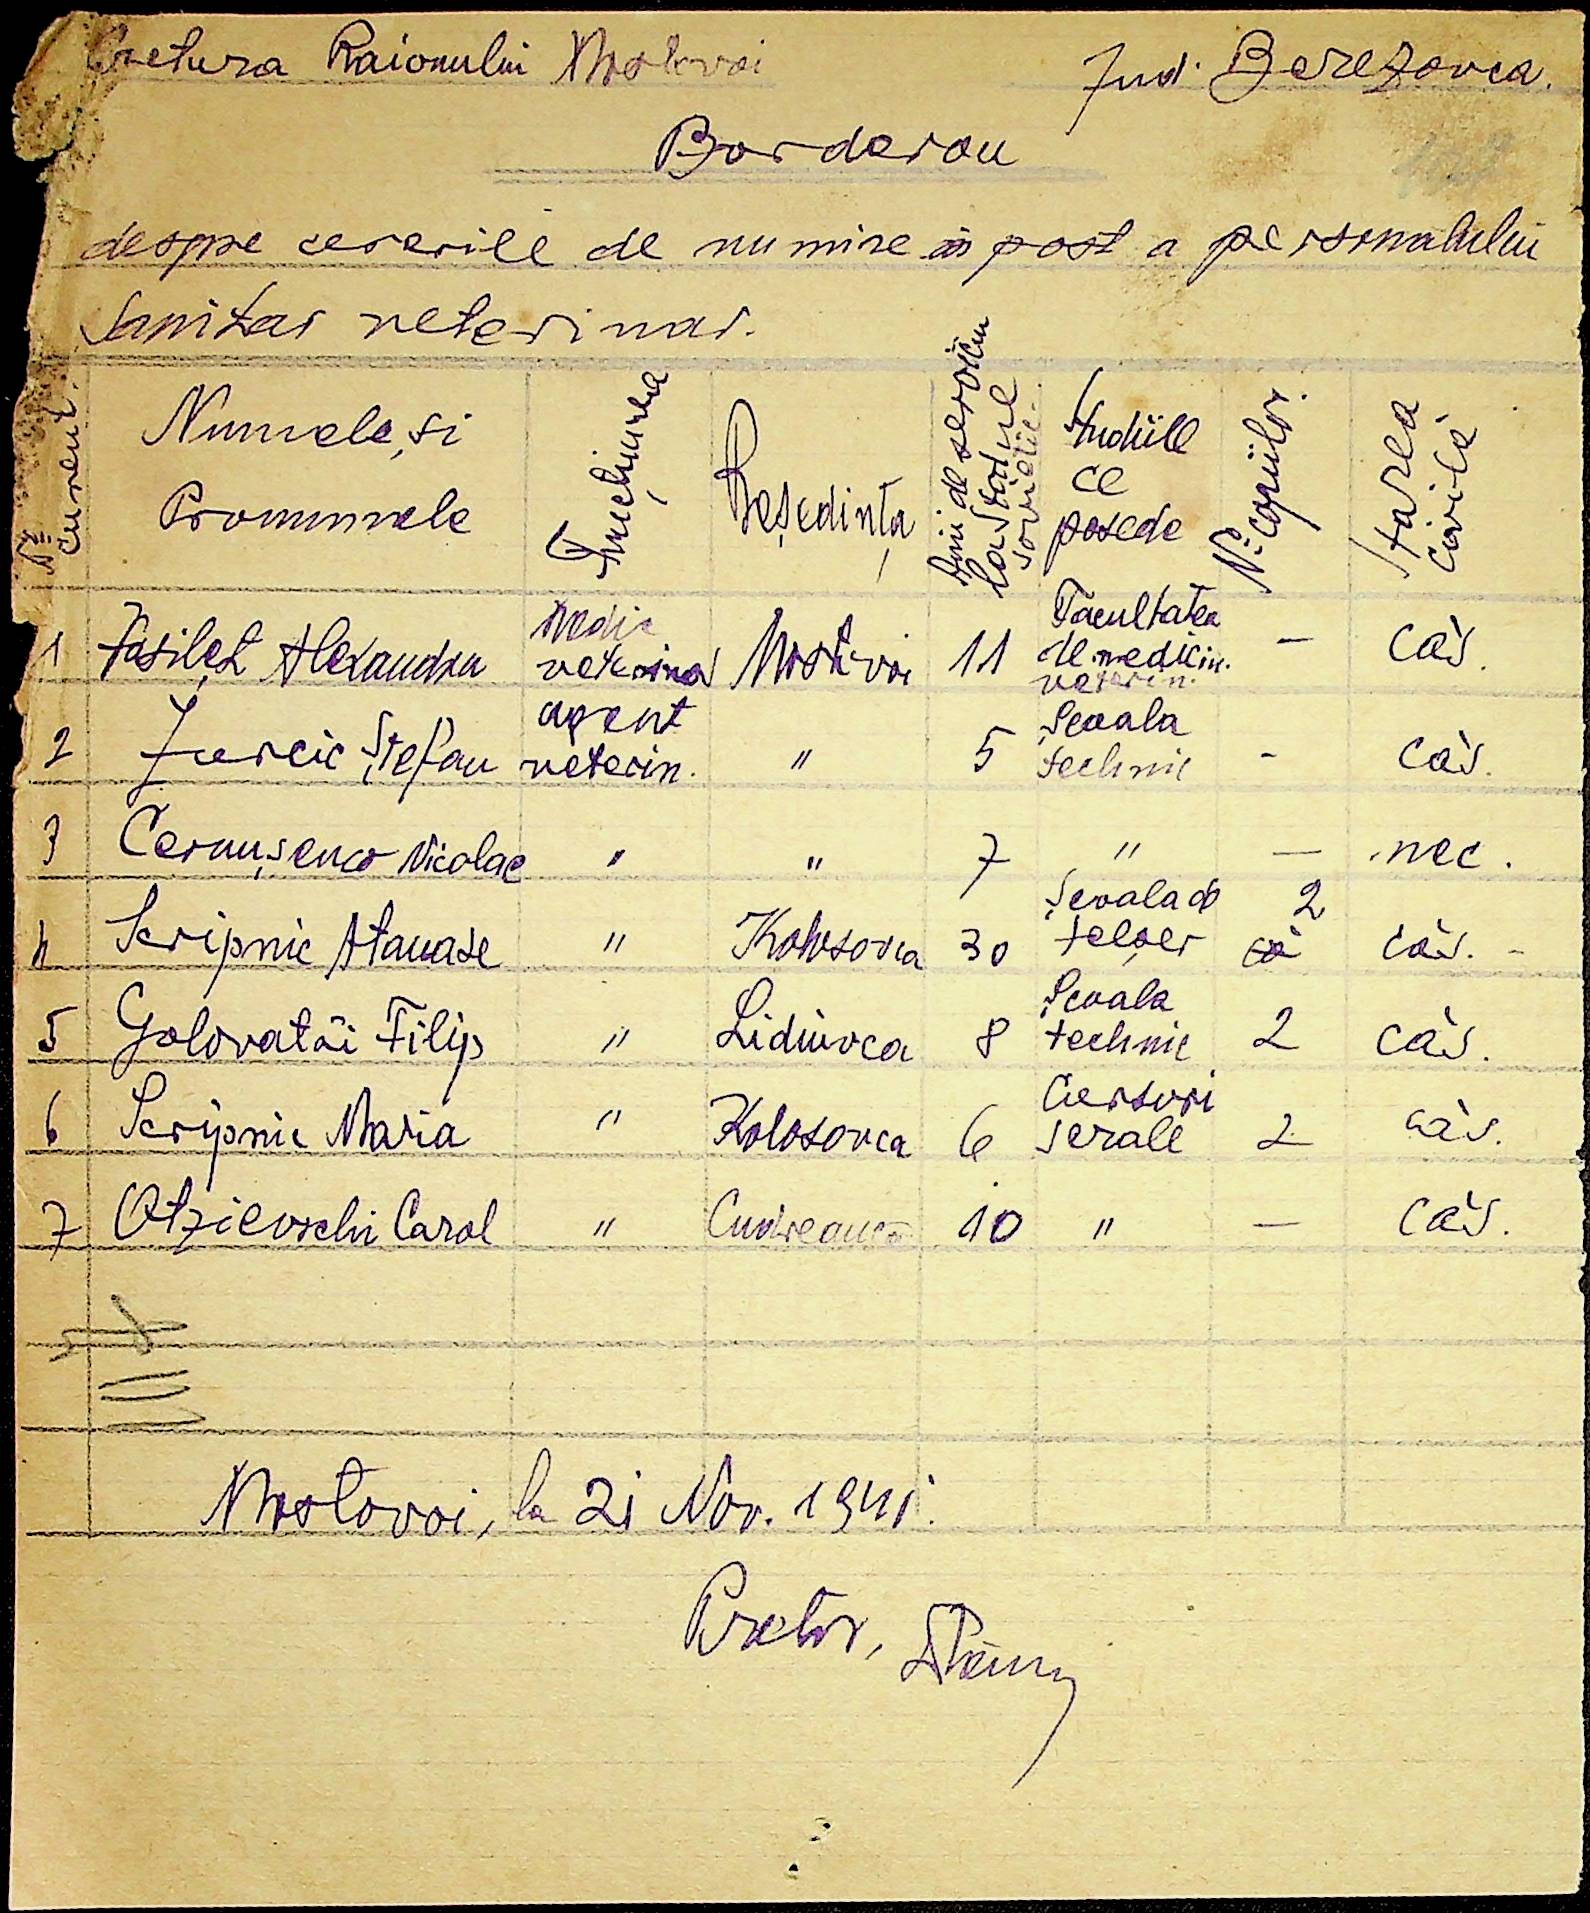 Pretura Raionului Mostovoi Jud. Berezovca.
Borderou
despre cererile de numire in post a personalului
sanitar veterinar.
Nr. curent. Numele și Pronumele Funcțiunea Reședința Ani de serviciu la statul sovietic. Studiile ce posede Nr. copiilor. Starea civilă
1 Vasileț Alexandru medic veterinar Mostovoi 11 Facultatea de medicin. veterin. — căs.
2 Jurcic Ștefan agent veterin. " 5 Școala technic - căs.
3 Cernușenco Nicolae " " 7 " — nec.
4 Scripnic Atanase " Kolosovca 30 Școala de felcer 2 căs. -
5 Golovatâi Filip " Lidiovca 8 Școala technic 2 căs.
6 Scripnic Maria " Kolosovca 6 Cursuri serale 2 căs.
7 Otzievschi Carol " 10 " — căs.
Mostovoi, la 21 Nov. 1941.
Pretor,